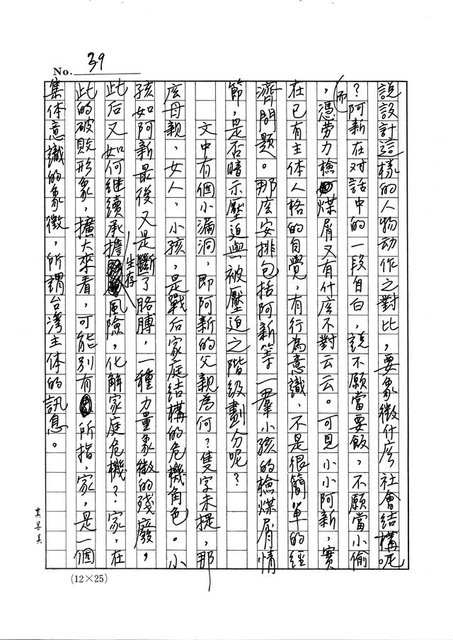 No. 39
說設計這樣的人物动作之對比，要象徵什庅社會結構呢
？阿新在对話中的一段自白，說不願當要飯，不願當小偷
，而憑劳力檢煤屑又有什庅不對云云。可見小小阿新，實
在已有主体人格的自覺，有行為意識，不是很簡單的經
濟問題。那庅安排包括阿新等一羣小孩的檢煤屑情
節，是否暗示壓迫與被壓迫之階級劃分呢？
文中有個小漏洞，即阿新的父親為何？隻字未提，那
庅母親，女人，小孩，是戰后家庭結構的危機角色。小
孩如阿新最後又是斷了胳膊，一種力量象徵的殘廢，
此后又如何継續承擔生存風險，化解家庭危機？家，在
此的破敗形象，擴大來看，可能別有所指，家，是一個
集体意識的象徵，所謂台湾主体的訊息。
(12×25)